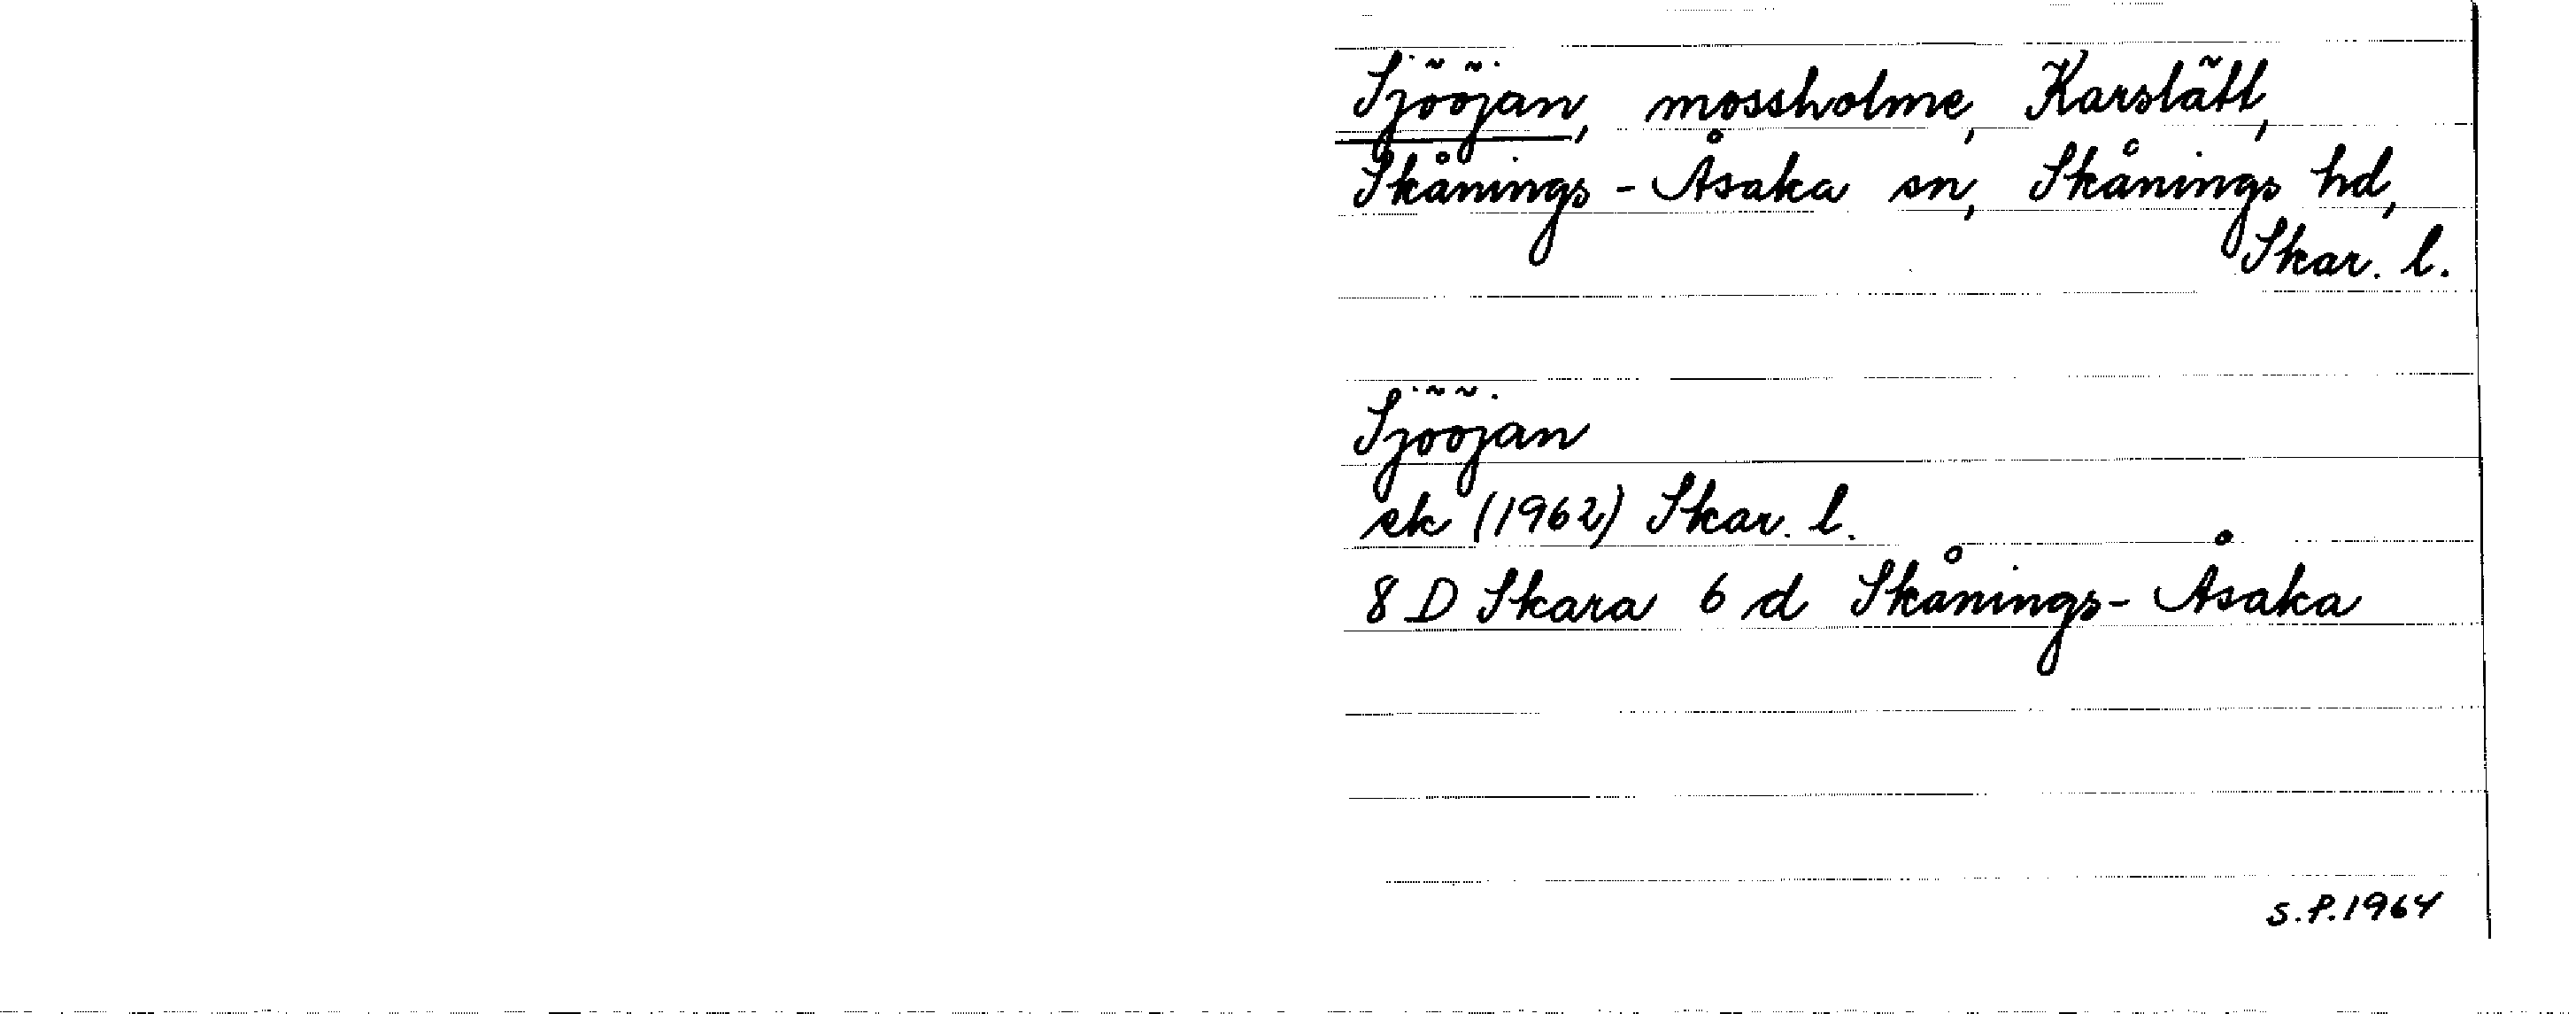 Sjööjan, mossholme, Karslätt,
Skånings-Åsaka sn, Skånings hd,
Skar. l.
Sjööjan
ek (1962) Skar. l.
8 D Skara 6 d Skånings-Åsaka
S.P. 1964